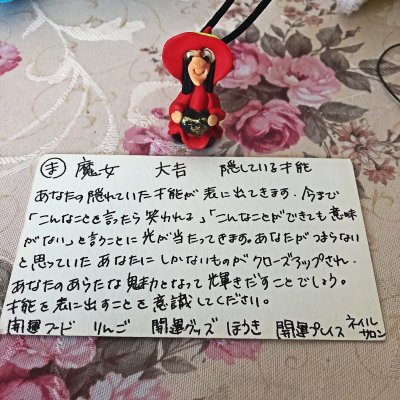 ま 魔女 大吉 隠している才能
あなたの隠れていた才能が表に出てきます。今まで
「こんなことを言ったら笑われる」「こんなことができても意味
がない」と言うことに光が当たってきます。あなたがつまらない
と思っていたあなたにしかないものがクローズアップされ、
あなたのあらたな魅力となって輝きだすことでしょう。
才能を表に出すことを意識してください。
開運フード りんご 開運グッズ ほうき 開運プレイス ネイルサロン